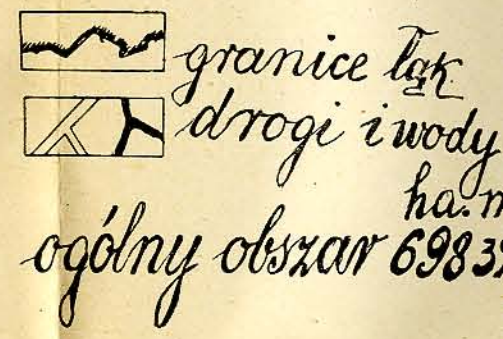 granice łąk
drogi i wody
ha. m
ogólny obszar 6983